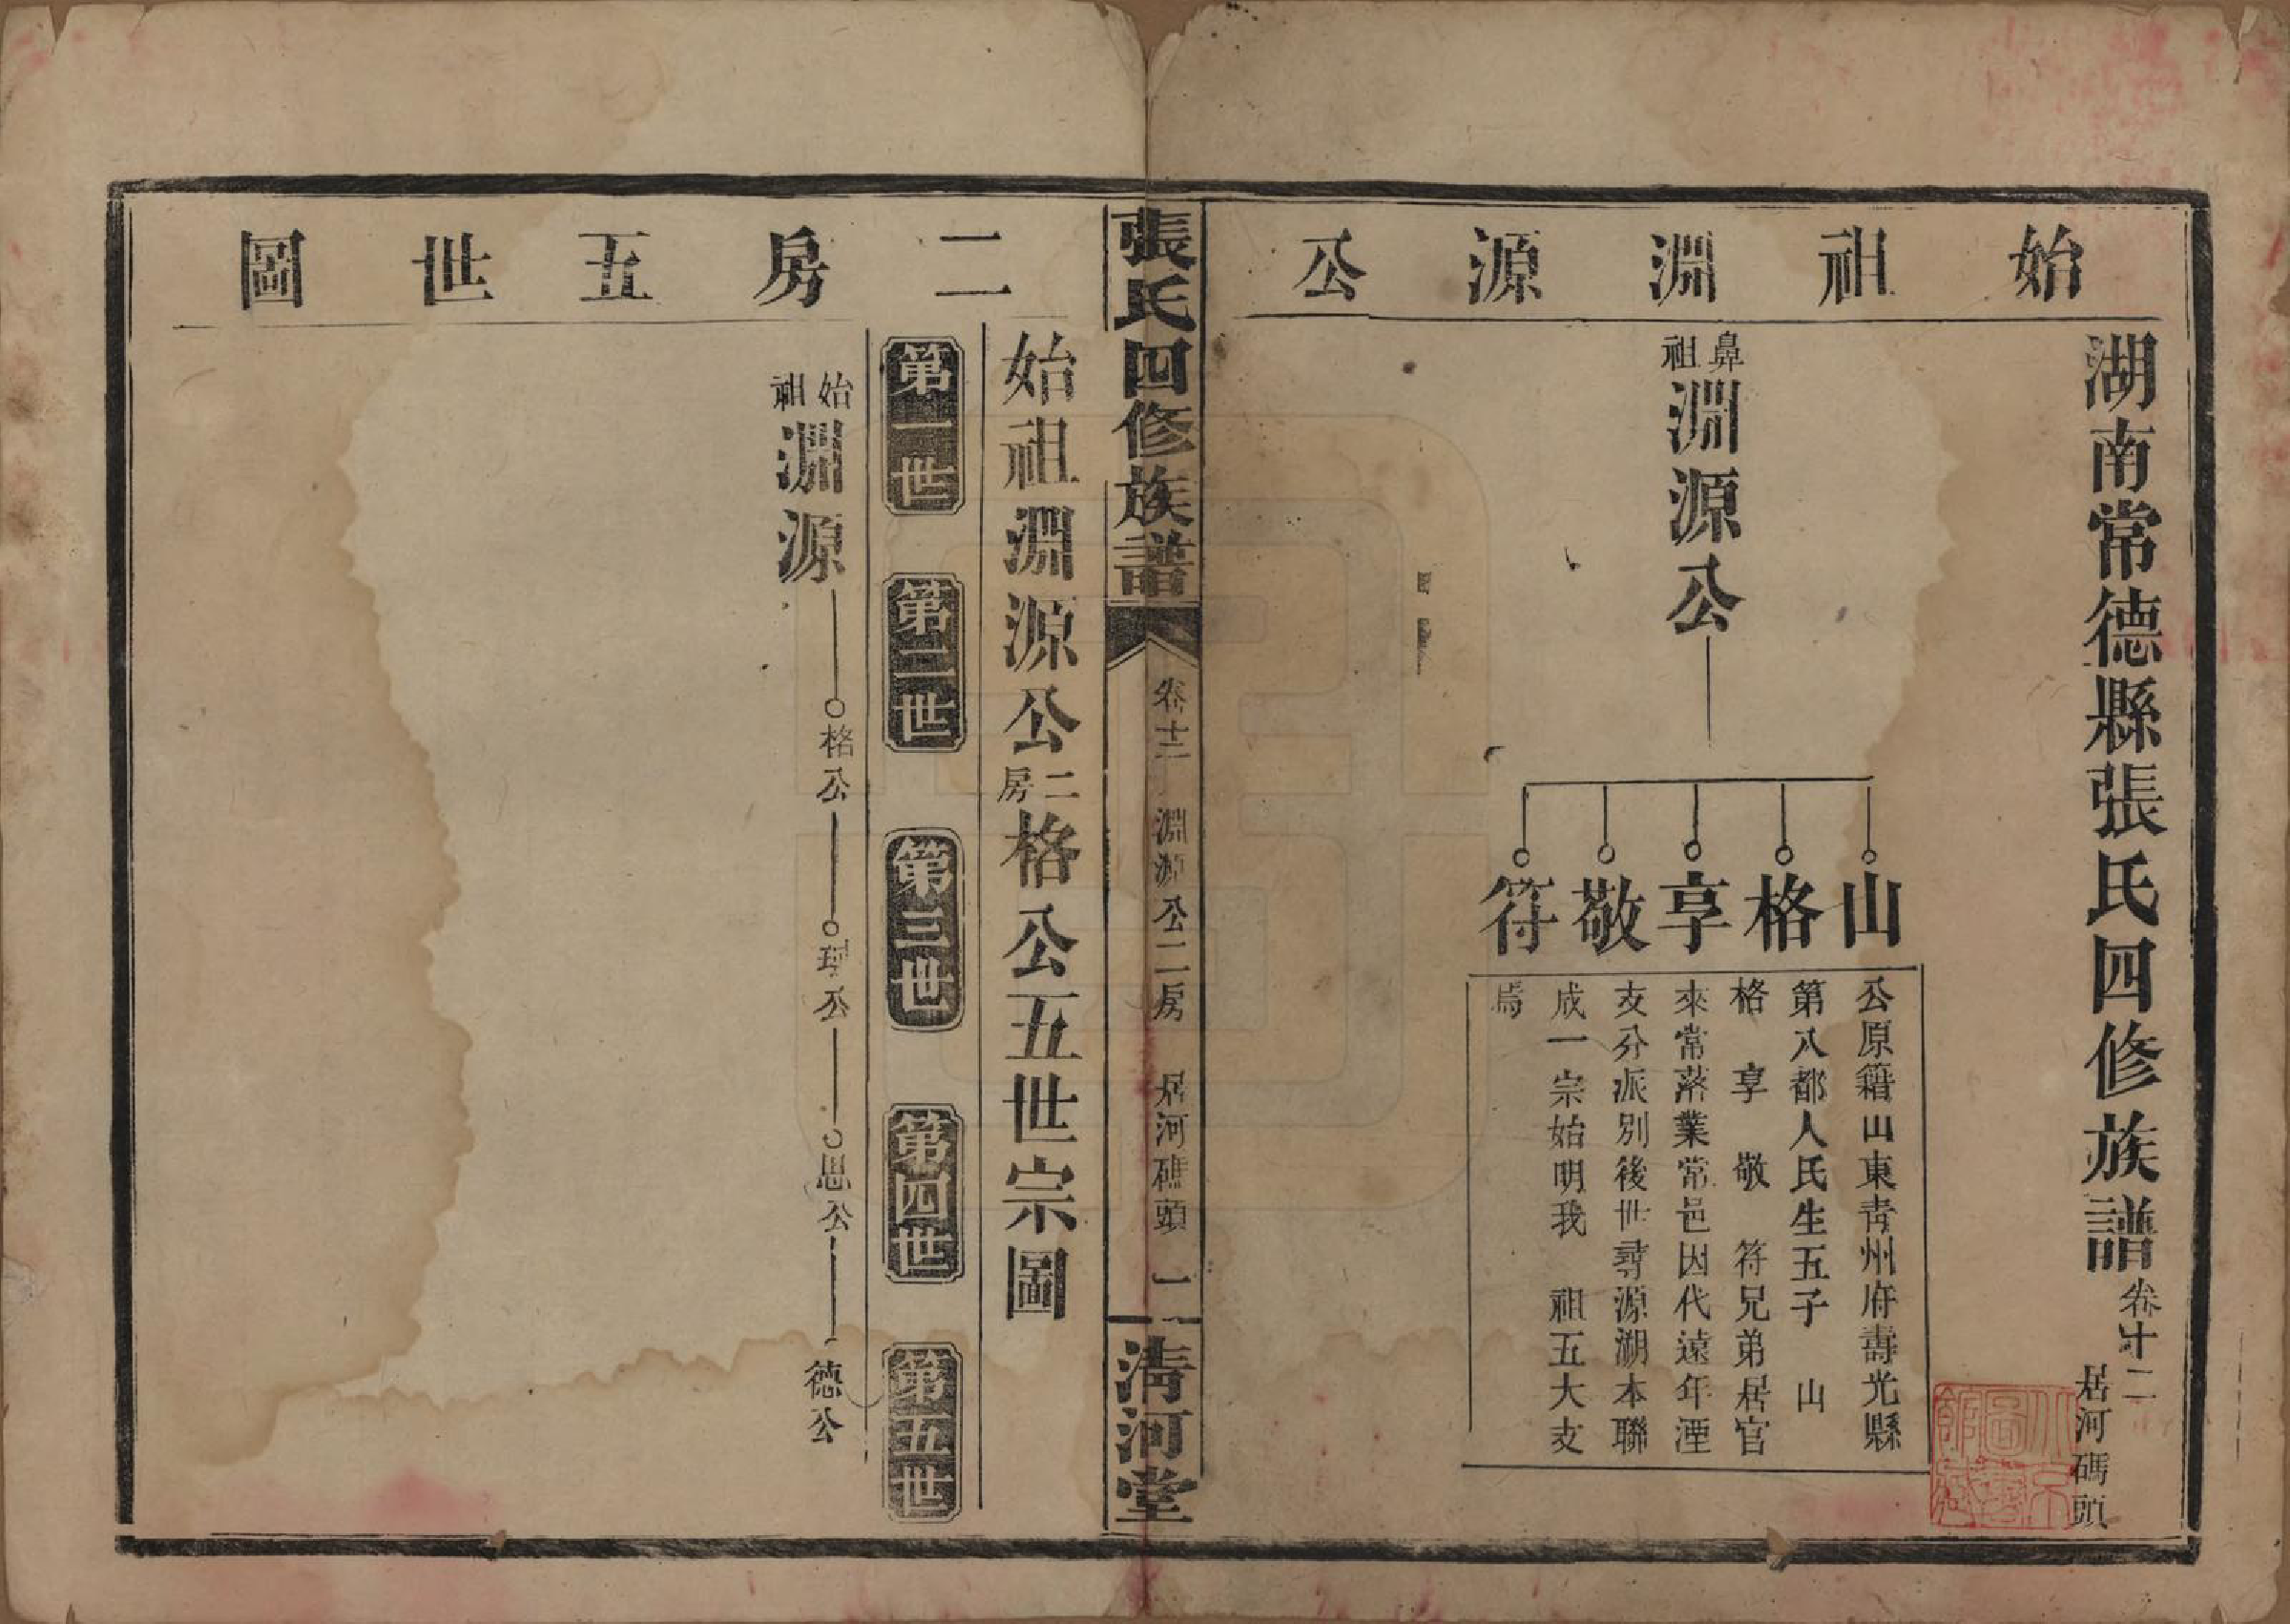 始祖淵源公
湖南常德縣張氏四修族譜
卷十二
居河碼頭
鼻祖
淵源公
山
格
享
敬
符
公原籍山東青州府壽光縣
第八都人氏生五子 山
格 享 敬 符兄弟居官
來常落業常邑因代遠年湮
支分派別後世尋源溯本聯
成一宗始明我 祖五大支
焉
張氏四修族譜
卷十二 淵源公二房 居河碼頭 一
清河堂
二房五世圖
始祖淵源公二房格公五世宗圖
第一世
第二世
第三世
第四世
第五世
始祖
淵源
格公
公
思公
德公